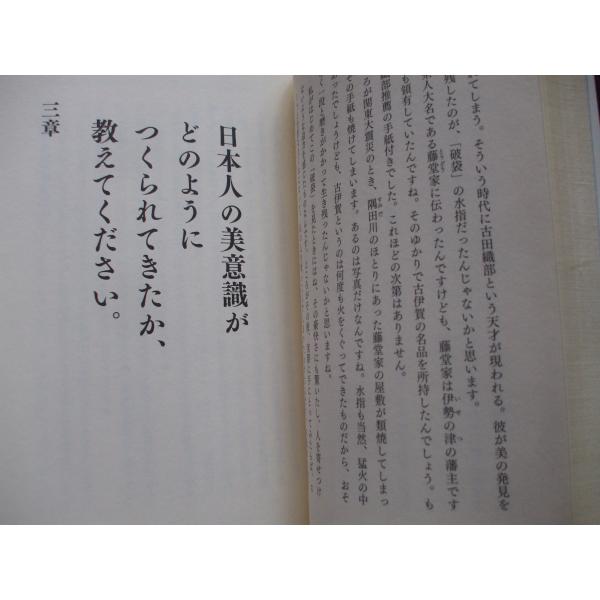 てしまう。そういう時代に古田織部という天才が現われる。彼が美の発見を
残したのが、「破袋」の水指だったんじゃないかと思います。
人大名である藤堂家に伝わったんですけども、藤堂家は伊勢の津の藩主です
も領有していたんですね。そのゆかりで古伊賀の名品を所持したんでしょう。も
部推薦の手紙付きでした。これほどの次第はありません。
ろが関東大震災のとき、隅田川のほとりにあった藤堂家の屋敷が類焼してしまっ
その手紙も焼けてしまいます。あるのは写真だけなんですね。水指も当然、猛火の中
あったでしょうけども、古伊賀というのは何度も火をくぐってできたものだから、おそ
一段と磨きがかかって生き残ったんじゃないかと思いますね。
私がはじめてこの「破袋」を見たときにはね、その豪快さにも驚いたし、人を寄せつけ
三章
日本人の美意識が
どのように
つくられてきたか、
教えてください。